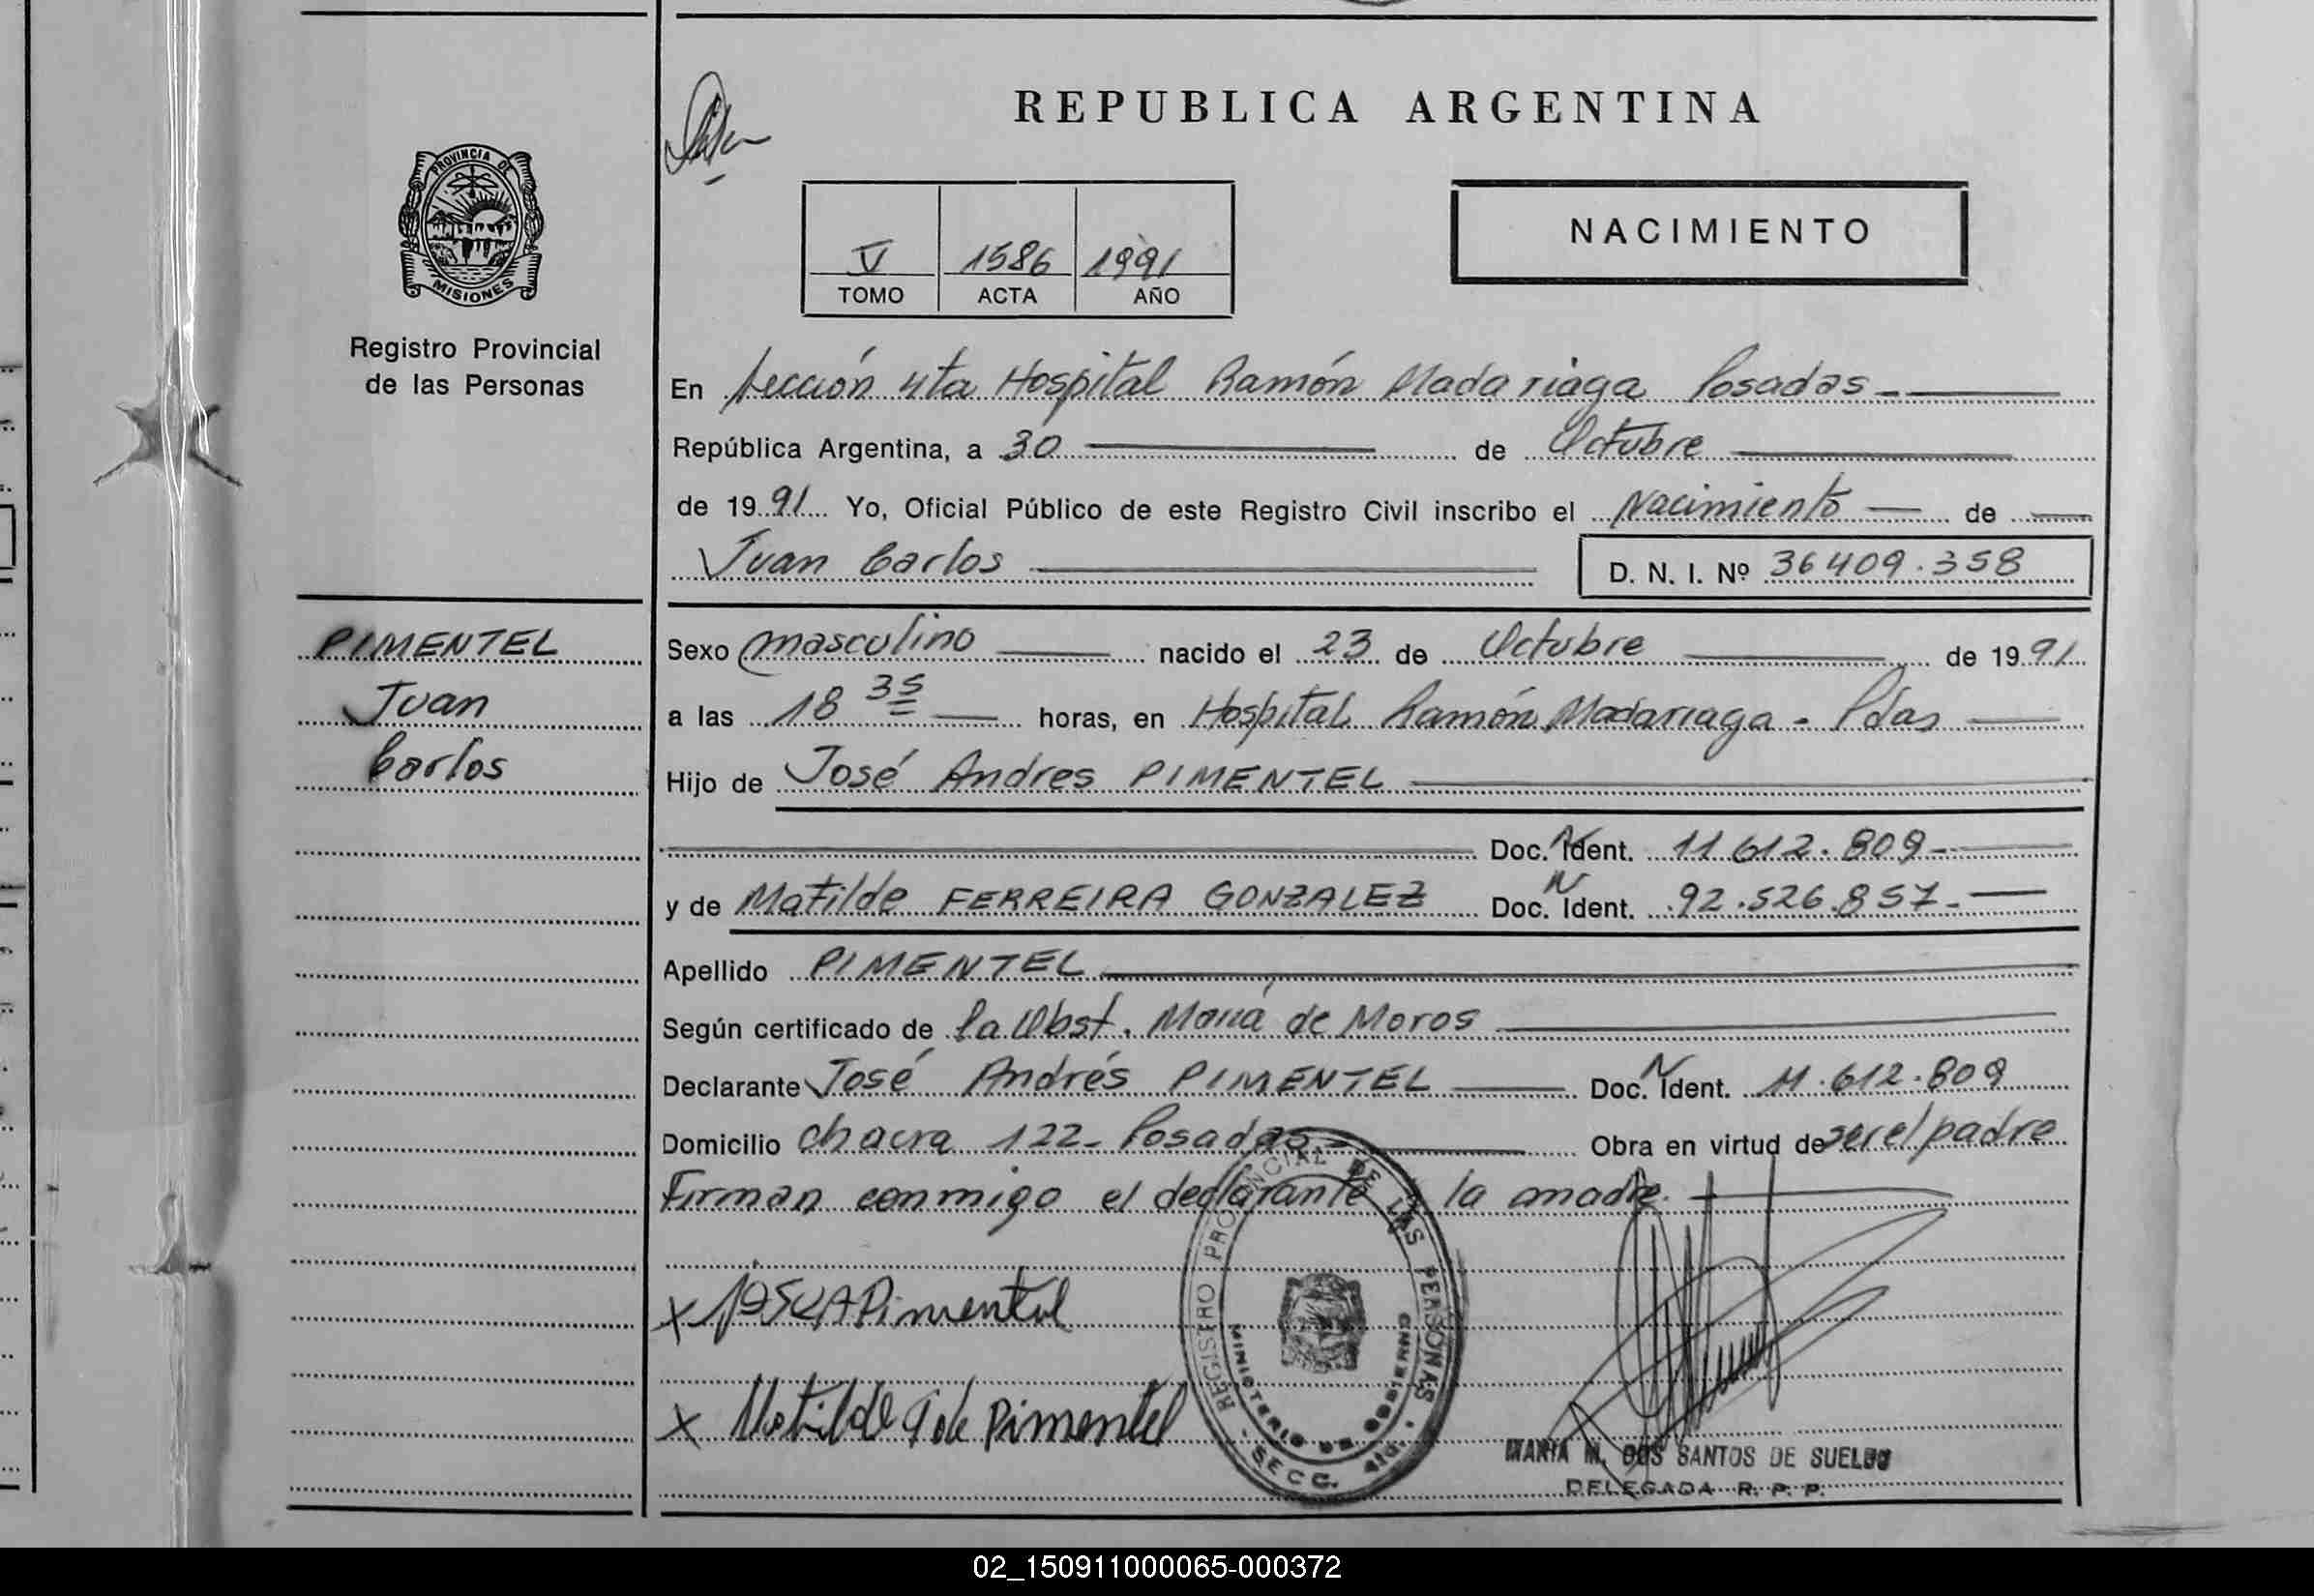 REPUBLICA ARGENTINA
PROVINCIA DE
MISIONES
Registro Provincial
de las Personas
NACIMIENTO
V 1586 1991
TOMO ACTA AÑO
En Sección 4ta Hospital Ramón Madariaga Posadas
República Argentina, a 30 de Octubre
de 1991 Yo, Oficial Público de este Registro Civil inscribo el Nacimiento de
Juan Carlos D. N. I. Nº 36409.358
PIMENTEL
Juan
Carlos
Sexo masculino nacido el 23 de Octubre de 1991
a las 18 35 horas, en Hospital Ramón Madariaga - Pdas
Hijo de José Andres PIMENTEL
Doc. N Ident. 11.612.809
y de Matilde FERREIRA GONZALEZ Doc. N Ident. 92.526.857
Apellido PIMENTEL
Según certificado de la Obst. María de Moros
Declarante José Andrés PIMENTEL Doc. N Ident. 11.612.809
Domicilio chacra 122 - Posadas Obra en virtud de ser el padre
Firman conmigo el declarante y la madre.
x José A Pimentel
x Matilde G de Pimentel
REGISTRO PROVINCIAL DE LAS PERSONAS
MINISTERIO DE GOBIERNO
SECC. 4ta.
MARIA M. DOS SANTOS DE SUELDO
DELEGADA R. P. P.
02_150911000065-000372